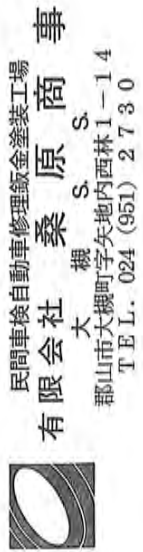 民間車検自動車修理鈑金塗装工場
有限会社 桑原商事
大槻 S. S.
郡山市大槻町字矢地内西林1－14
TEL. 024 (951) 2730